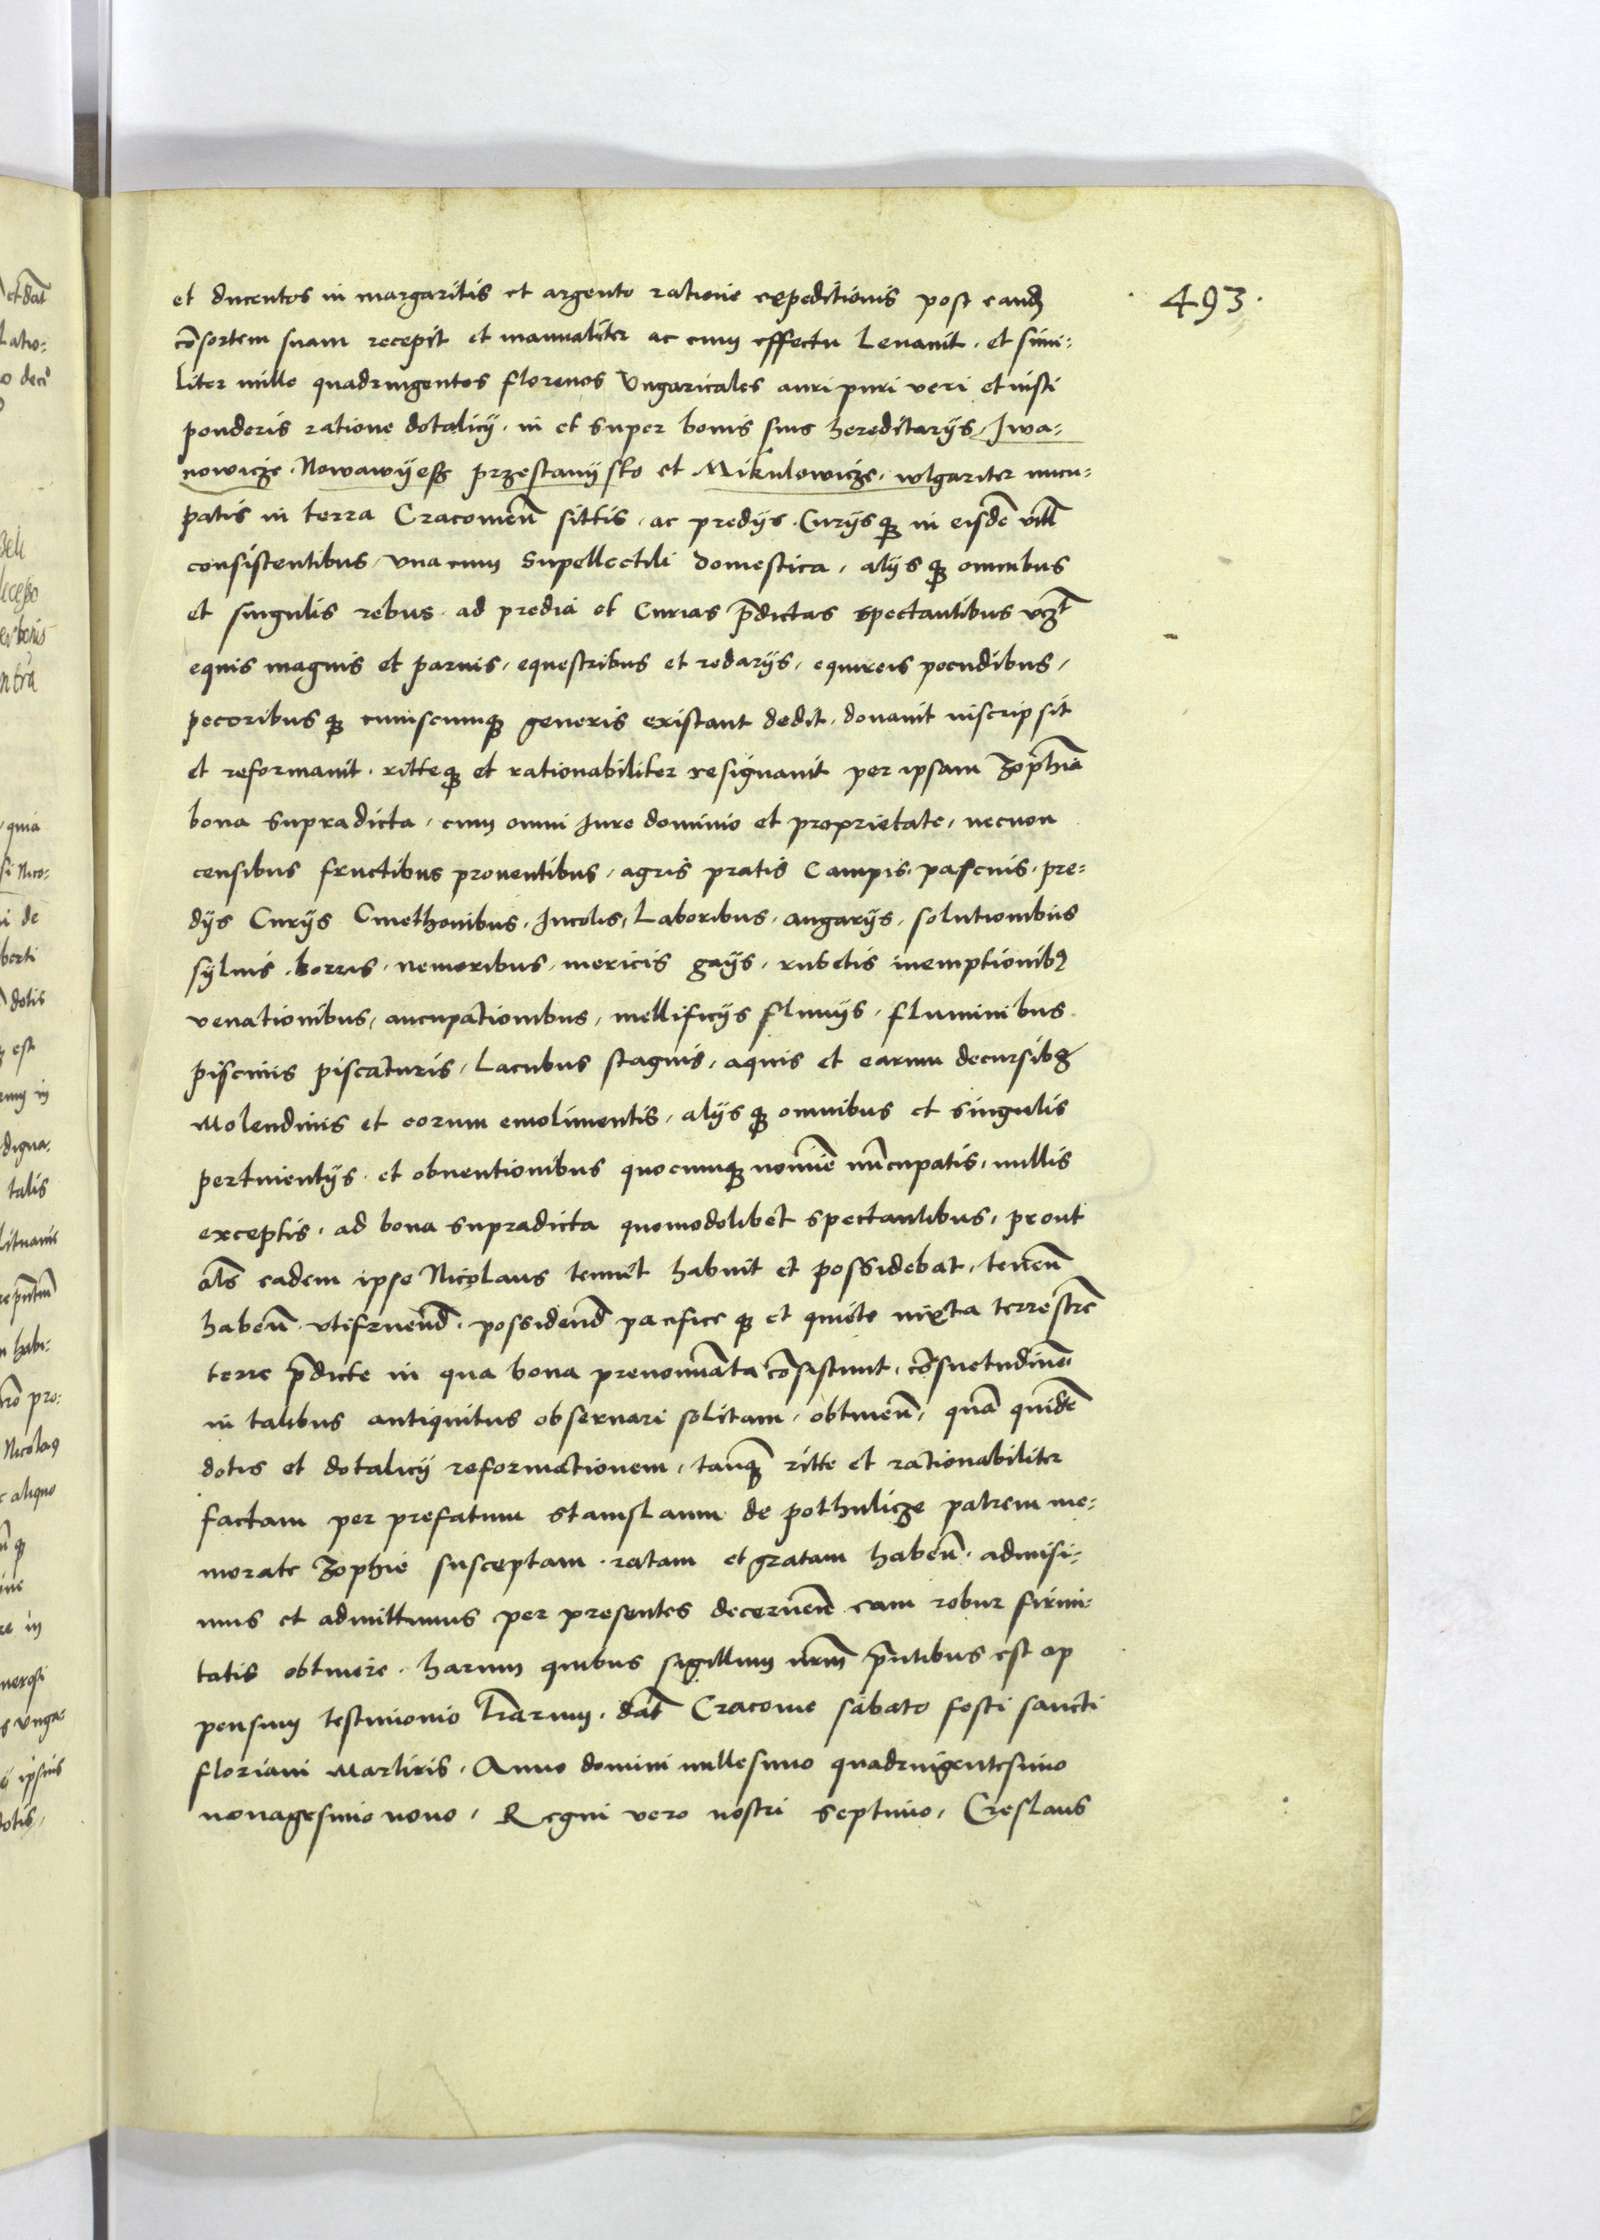 493.
et ducentos in margaritis et argento ratione expeditionis post eandē
cōsortem suam recepit et manualiter ac cum effectu Levavit . et simi-
liter mille quadringentos florenos Ungaricales auri puri veri et iusti
ponderis ratione dotalicij . in et super bonis suis hereditarijs, Iwa-
nowicze . Nowawyesz Przestanÿsko et Mikulowicze, wlgariter nucu-
patis in terra Cracovieñ sittis, ac predijs . Curijsqꝫ in eisdē vill
consistentibus, Una cum Supellectili domestica, alijsqꝫ omnibus
et singulis rebus ad predia et Curias p̄dictas spectantibus vcꝫt
equis magnis et parvis, equestribus et redarijs, equireis pecudibus,
pecoribusqꝫ cuiuscumqꝫ generis existant dedit, donavit inscripsit
et reformavit . ritteqꝫ et rationabiliter resignavit per ipsam Zophiā
bona supradicta, cum omni Iure dominio et proprietate, necnon
censibus fructibus proventibus, agris pratis Campis, pascuis, pre-
dijs Curijs Cmethonibus, Incolis, Laboribus, angarijs, solutionibus
sylvis, borris, nemoribus, mericis gaijs, rubetis inemptionibꝫ
venationibus, aucupationibus, mellificijs fluvijs, fluminibus
piscinis piscaturis, Lacubus stagnis, aquis et earum decursibꝫ
Molendinis et eorum emolimentis, alijsqꝫ omnibus et singulis
pertinentijs . et obventionibus quocumqꝫ nomīe nūcupatis, nullis
exceptis, ad bona supradicta quomodolibet spectantibus, prout
als̄ eadem ipse Nicolaus tenuit habuit et possidebat, teneñ
habeñ utifrueñd . possideñd pacificeqꝫ et quiete iuxta terrestrē
terre p̄dicte in qua bona prenomīata cōsistunt, cōsuetudinē
in talibus antiquitus observari solitam, obtineñ, quā quidē
dotis et dotalicij reformationem, tanqꝫ ritte et rationabiliter
factam per prefatum Stanislaum de Pothulicze patrem me-
morate Zophie susceptam, ratam et gratam habeñ, admisi-
mus et admittimus per presentes decerneñ eam robur firmi-
tatis obtinere . harum quibus sigillum nr̄m p̄ntibus est ap
pensum testimonio lr̄arum . dat̄ Cracovie sabato festi sancti
floriani Martiris, Anno domini millesimo quadringentesimo
nonagesimo nono, Regni vero nostri septimo, Creslaus